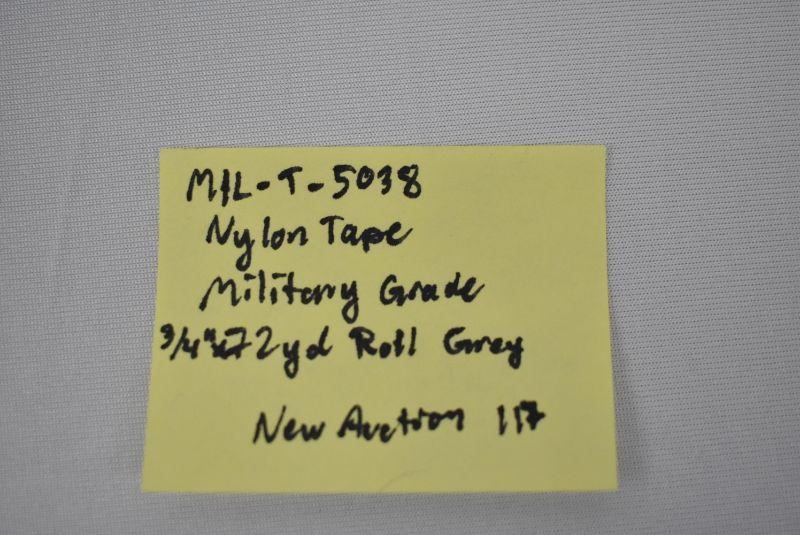 MIL-T-5038
Nylon Tape
Military Grade
3/4"x72yd Roll Grey
New Auction 117